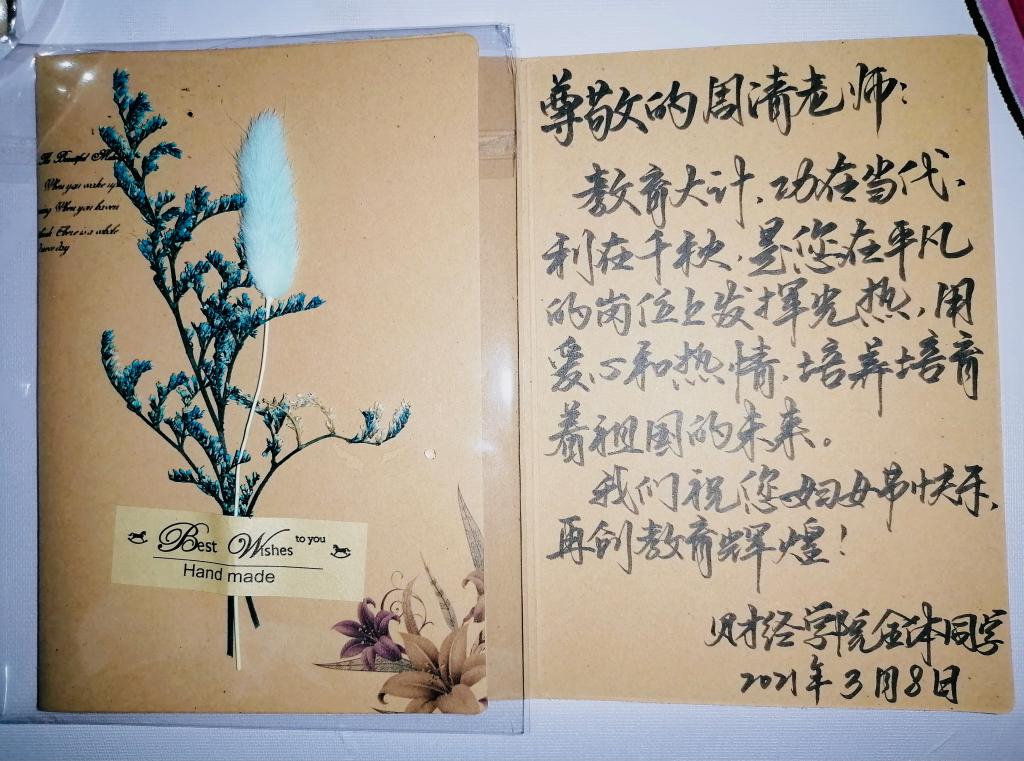 When you make up
ing When you haven
There is a whole
day
Best Wishes to you
Hand made
尊敬的周清老师:
教育大计,功在当代,
利在千秋,是您在平凡
的岗位上发挥光热,用
爱心和热情,培养培育
着祖国的未来。
我们祝您妇女节快乐,
再创教育辉煌!
财经学院全体同学
2021年3月8日